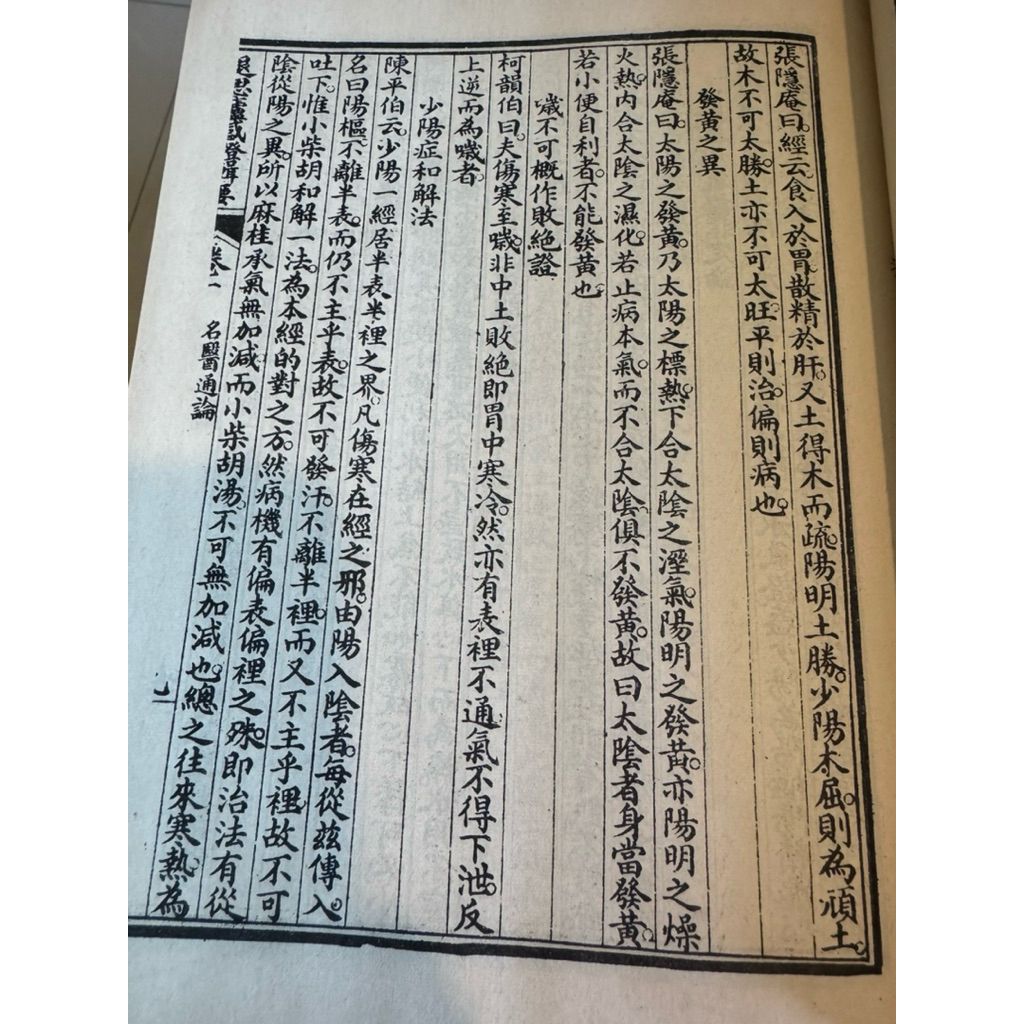 張隱庵曰。經云食入於胃。散精於肝。又土得木而疏。陽明土勝。少陽木屈。則為頑土。
故木不可太勝。土亦不可太旺。平則治。偏則病也。
發黃之異
張隱庵曰。太陽之發黃。乃太陽之標熱。下合太陰之溼氣。陽明之發黃。亦陽明之燥
火熱。內合太陰之濕化。若止病本氣。而不合太陰。俱不發黃。故曰太陰者身當發黃。
若小便自利者。不能發黃也。
噦不可概作敗絕證
柯韻伯曰。夫傷寒至噦。非中土敗絕。即胃中寒冷。然亦有表裡不通。氣不得下泄。反
上逆而為噦者。
少陽症和解法
陳平伯云。少陽一經。居半表半裡之界。凡傷寒在經之邪。由陽入陰者。每從茲傳入。
名曰陽樞。不離半表。而仍不主乎表。故不可發汗。不離半裡。而又不主乎裡。故不可
吐下。惟小柴胡和解一法。為本經的對之方。然病機有偏表偏裡之殊。即治法有從
陰從陽之異。所以麻桂承氣無加減。而小柴胡湯。不可無加減也。總之往來寒熱。為
卷一 名醫通論